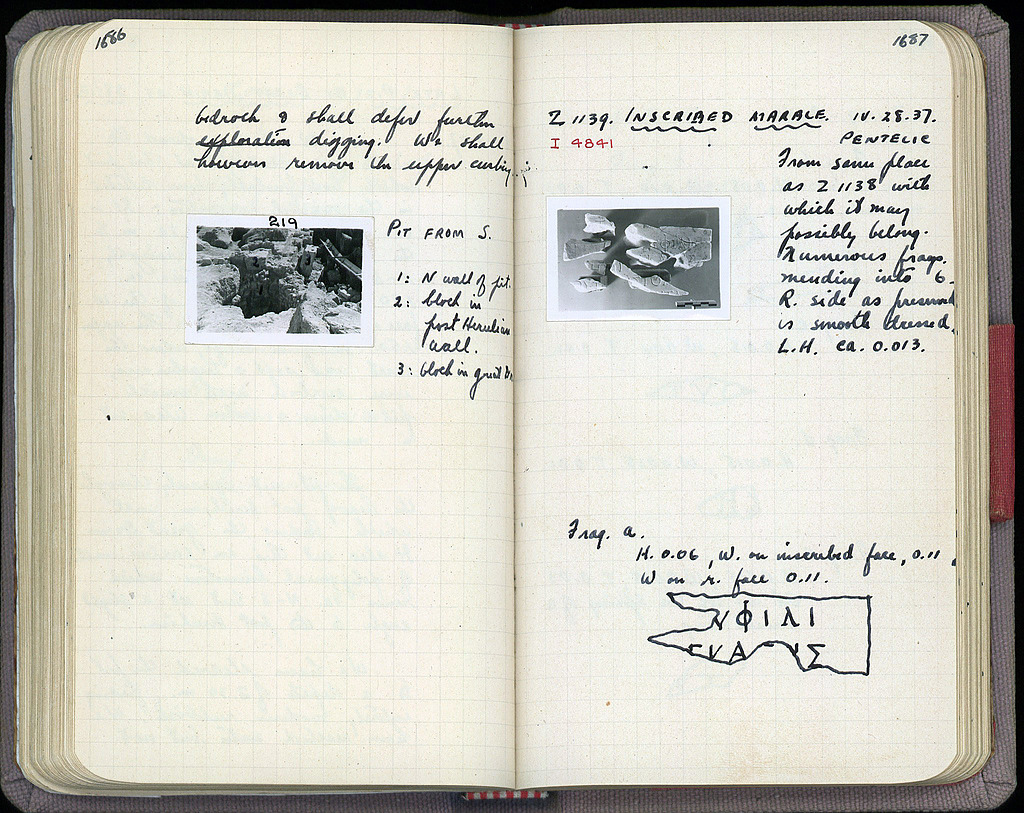 1686
bedrock & shall defer further
exploration digging. We shall
however remove the upper curbing
219
PIT FROM S.
1: N wall of pit.
2: block in
post Herulian
wall.
3: block in great
1687
Z 1139. INSCRIBED MARBLE. IV. 28.37.
I 4841
PENTELIC
From same place
as Z 1138 with
which it may
possibly belong.
Numerous frags.
mending into 6.
R. side as preserved
is smooth dressed.
L.H. ca. 0.013.
Frag. a.
H. 0.06, W. on inscribed face, 0.11,
W on r. face 0.11.
ΝΦΙΛΙ